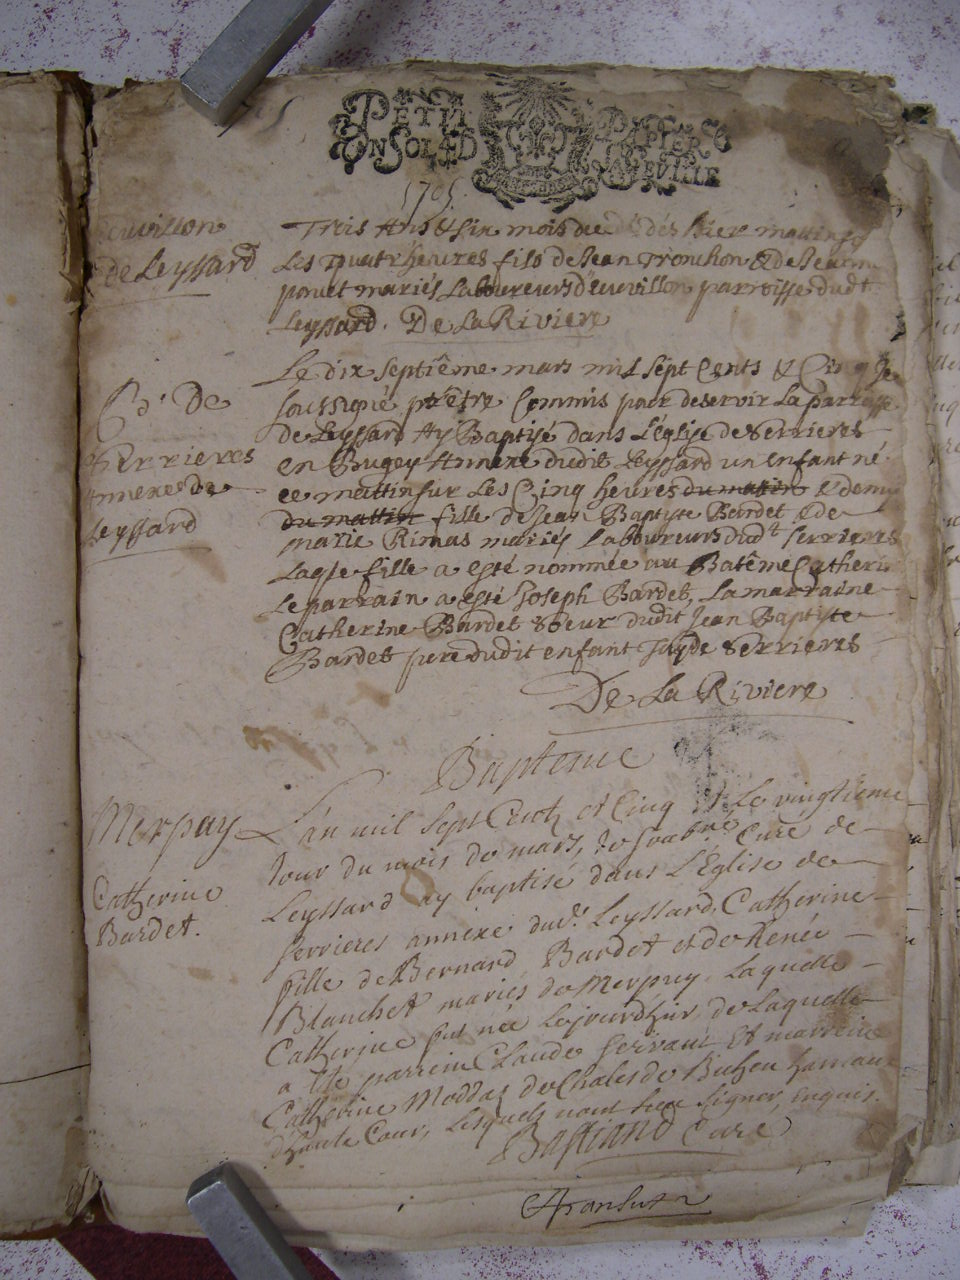 PETIT PAPIER
UN SOL 4 D LA FEVILLE
1705
de Leyssard
Trois Ans & six mois dés hier mattin
Les quatr'heures fils de Jean Tronchon & de
ponet mariés Laboureurs parroisse dudt
Leyssard. De La Riviere
De
Serrieres
Annexe de
Leyssard
Le dix septiême mars mil sept Cents & Cinq Je
soussigné prêtre Commis pour deservir La parroisse
de Leyssard Ay Baptisé dans L'église de Serrieres
en Bugey Annexe dudit Leyssard un enfant né
ce mattin sur Les Cinq heures du matin & demy
du mattin fille de Jean Baptyte Bardet & de
marie Rimas mariés Laboureurs dudt Serrieres
Laqle fille a esté nommée au Batême Catherin
Le parrain a esté Joseph Bardet, La marraine
Catherine Bardet soeur dudit Jean Baptiste
Bardet pere dudit enfant de Serrieres
De La Riviere
Bapteme
Merpuy
Catherine
Bardet.
L'an mil sept Cents et Cinq Le vingtieme
Jour du mois de mars, Je Curé de
Leyssard ay baptisé dans L'Église de
Serrieres annexe dud. Leyssard, Catherine
fille de Bernard Bardet et de Renée
Blanchet mariés de Merpuy. Laquelle
Catherine fut née Lejourdhui, de Laquelle
a été parrein Claude Servant Et marreine
Catherine Moddas de Chales de hameau
d'haute Cour, Lesquels n'ont sceu signer, enquis.
Bastiand Curé